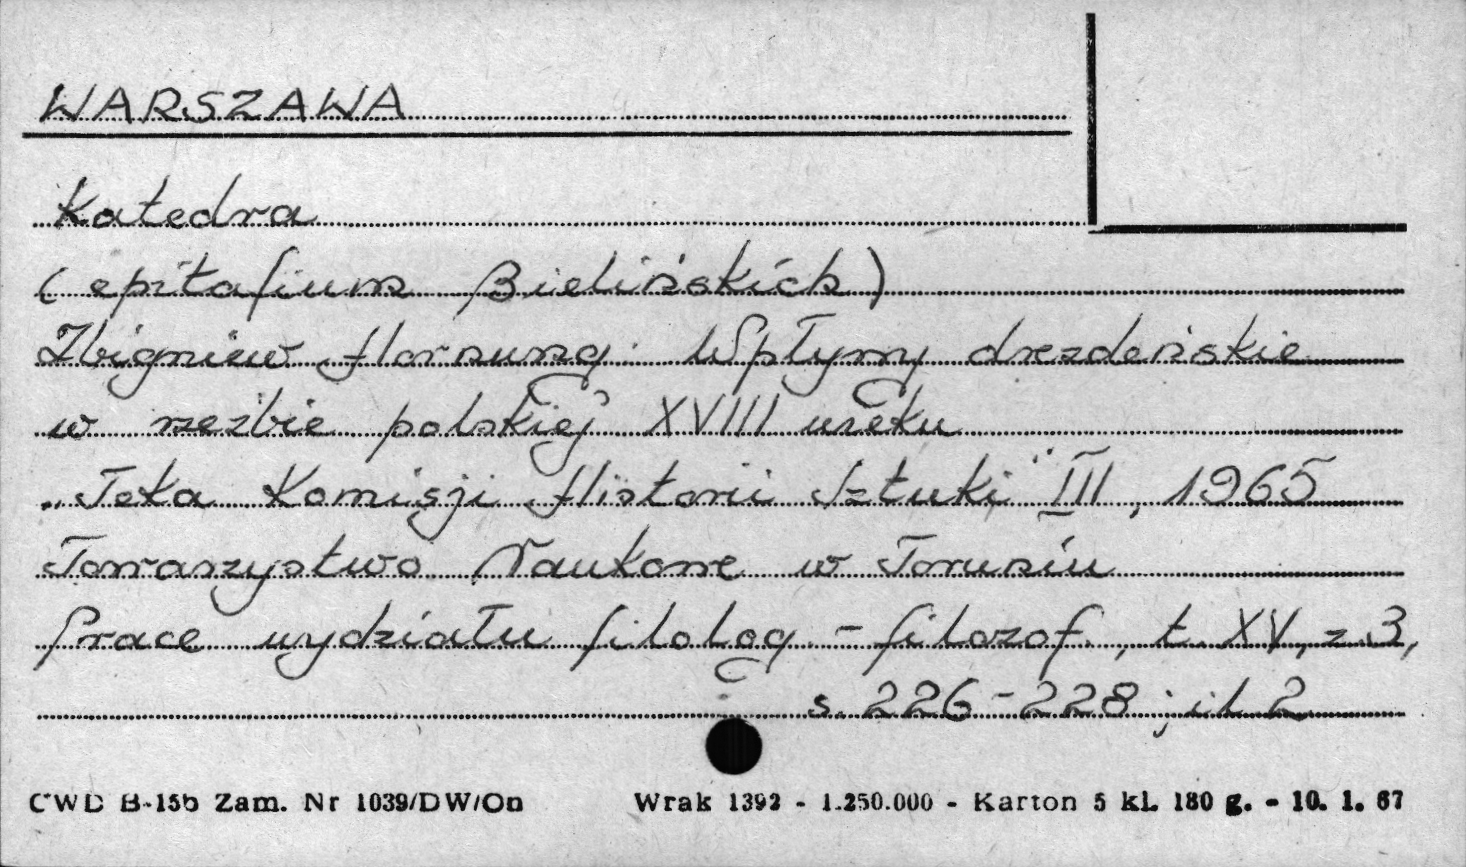 WARSZAWA
Katedra
(epitafium Bielińskich)
Zbigniew Hornung. Wpływy drezdeńskie
w rzeźbie polskiej XVIII wieku
„Teka Komisji Historii Sztuki" III, 1965
Towarzystwo Naukowe w Toruniu
Prace wydziału filolog.-filozof., t. XV, z. 3,
s. 226-228; il 2
CWD B-15b Zam. Nr 1039/DW/On Wrak 1392 - 1.250.000 - Karton 5 kl. 180 g. - 10. 1. 67